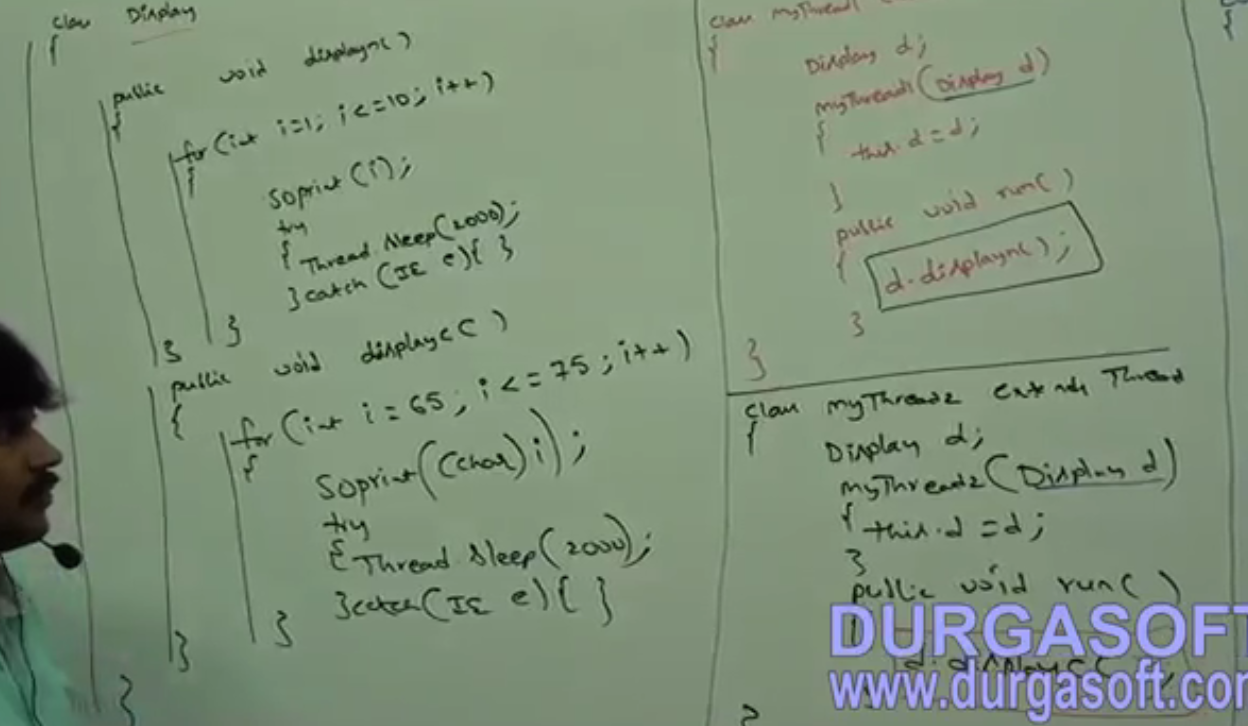 class Display
{
public void displayn()
{
for(int i=1; i<=10; i++)
{
soprint(i);
try
{ Thread.sleep(2000);
}catch(IE e){ }
}
}
public void displayc()
{
for(int i=65; i<=75; i++)
{
soprint((char)i);
try
{ Thread.sleep(2000);
}catch(IE e){ }
}
}
}
class myThread1
{
Display d;
myThread1(Display d)
{
this.d=d;
}
public void run()
{
d.displayn();
}
}
class myThread2 extends Thread
{
Display d;
myThread2(Display d)
{ this.d=d;
}
public void run()
{
d.displayc();
}
{
DURGASOFT
www.durgasoft.co